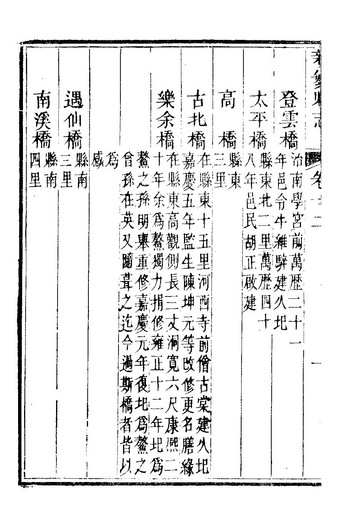 登雲橋
治南學宮前萬歷二十一
年邑令牛維騂建久圯
太平橋
縣東北二里萬歷四十
八年邑民胡正啟建
高橋
縣東
三里
古北橋
在縣東十五里河西寺前僧古棠建久圯
嘉慶五年監生陳坤元等改修更名勝緣
樂余橋
在縣東高觀側長三丈洞寬六尺康熙二
十年余為鰲獨力捐修雍正十二年圯為
鰲之孫明舉重修嘉慶元年復圯為鰲之
曾孫在英又圖葺之迄今過斯橋者皆以
為
感
遇仙橋
縣南
三里
南溪橋
縣南
四里